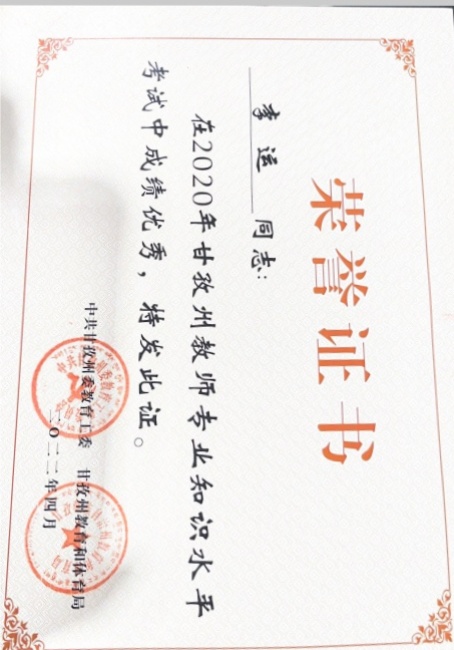 荣誉证书
李运 同志:
在2020年甘孜州教师专业知识水平
考试中成绩优秀,特发此证。
中共甘孜州委教育工委 甘孜州教育和体育局
二〇二二年四月